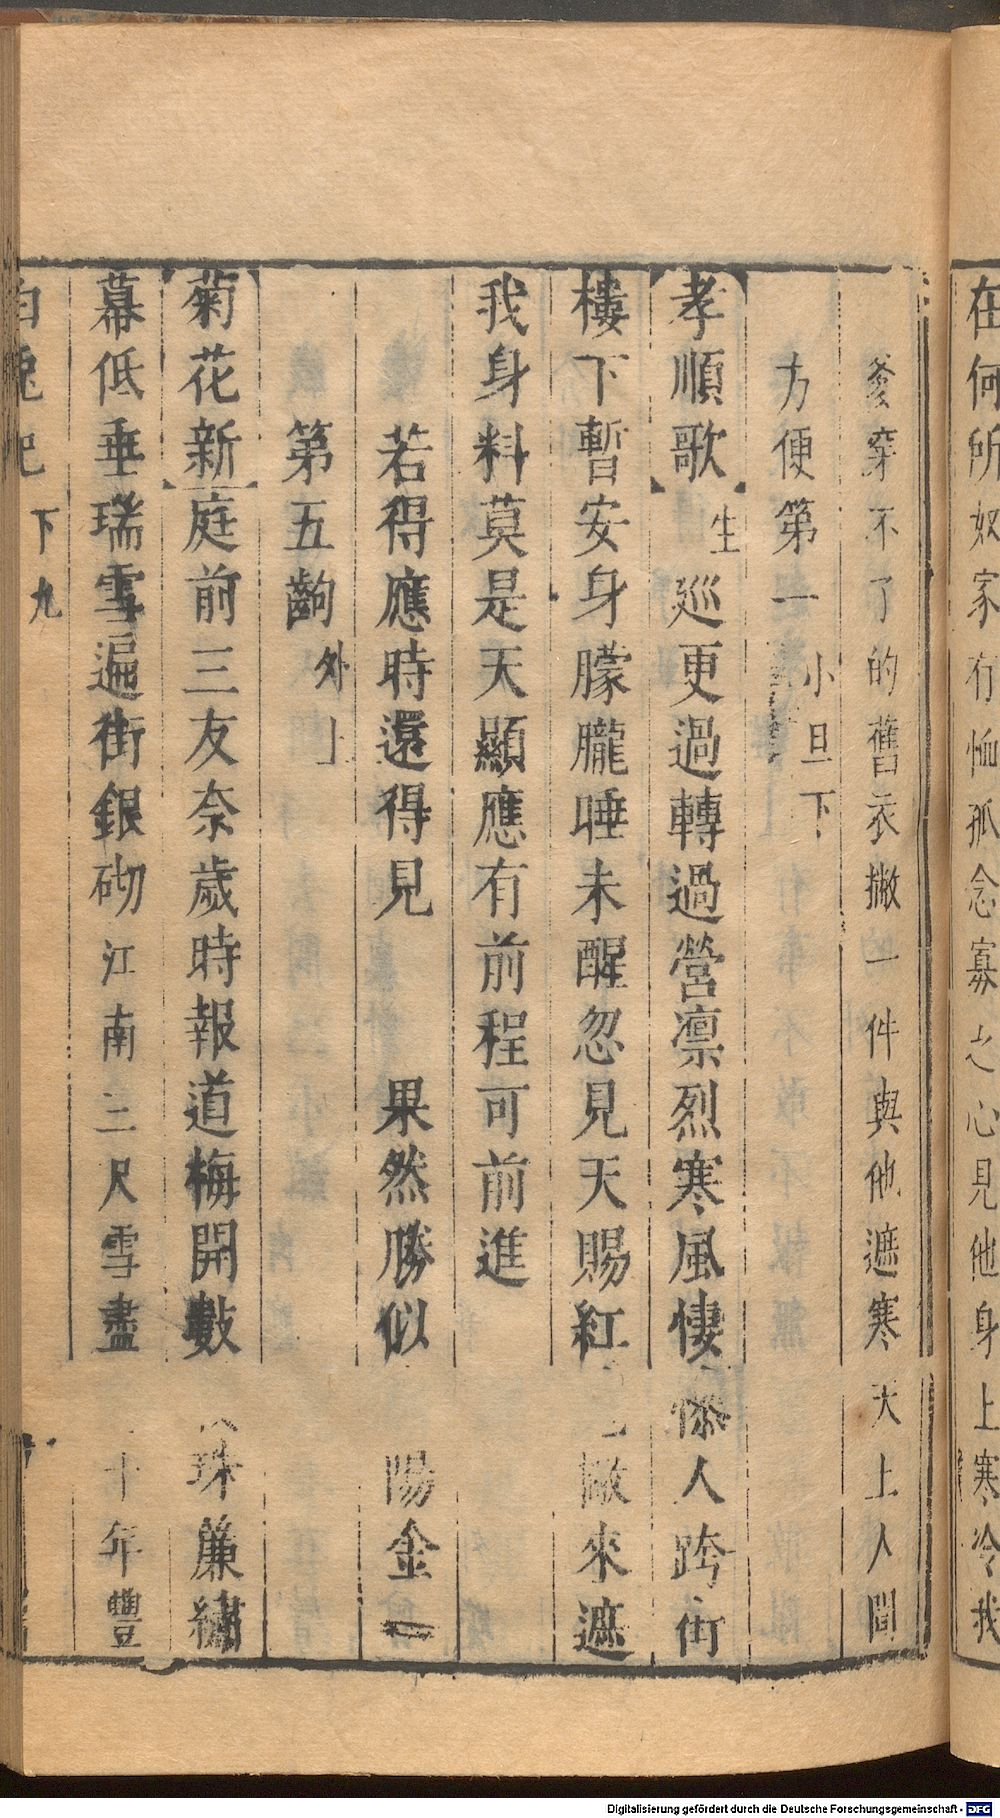 在何所奴家有恤孤念寡之心見他身上寒冷我
爹穿不了的舊衣撇一件與他遮寒天上人間
方便第一 小旦下
孝順歌 生 巡更過轉過營凛烈寒風悽慘人跨街
樓下暫安身朦朧睡未醒忽見天賜紅 來遮
我身料莫是天顯應有前程可前進
若得應時還得見 果然勝似 陽金
第五齣 外上
菊花新 庭前三友奈歲時報道梅開數 珠簾繡
幕低垂瑞雪遍街銀砌 江南三尺雪盡 十年豐
白兔記 下 九
Digitalisierung gefördert durch die Deutsche Forschungsgemeinschaft - DFG